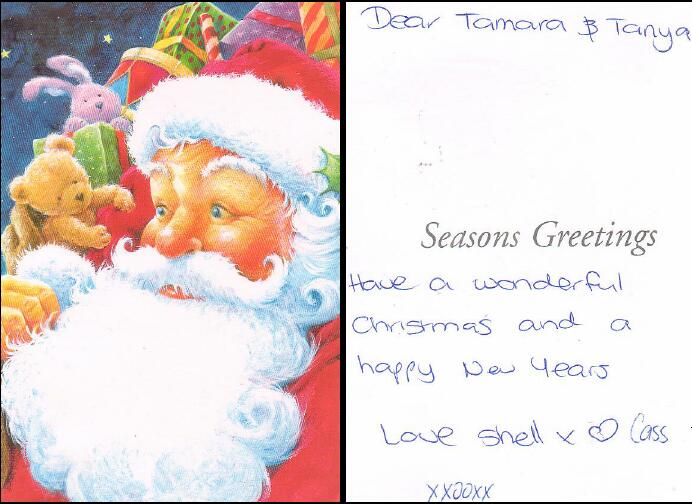 Dear Tamara & Tanya
Seasons Greetings
Have a wonderful
Christmas and a
happy New Years
Love shell x ♡ Cass
xxooxx